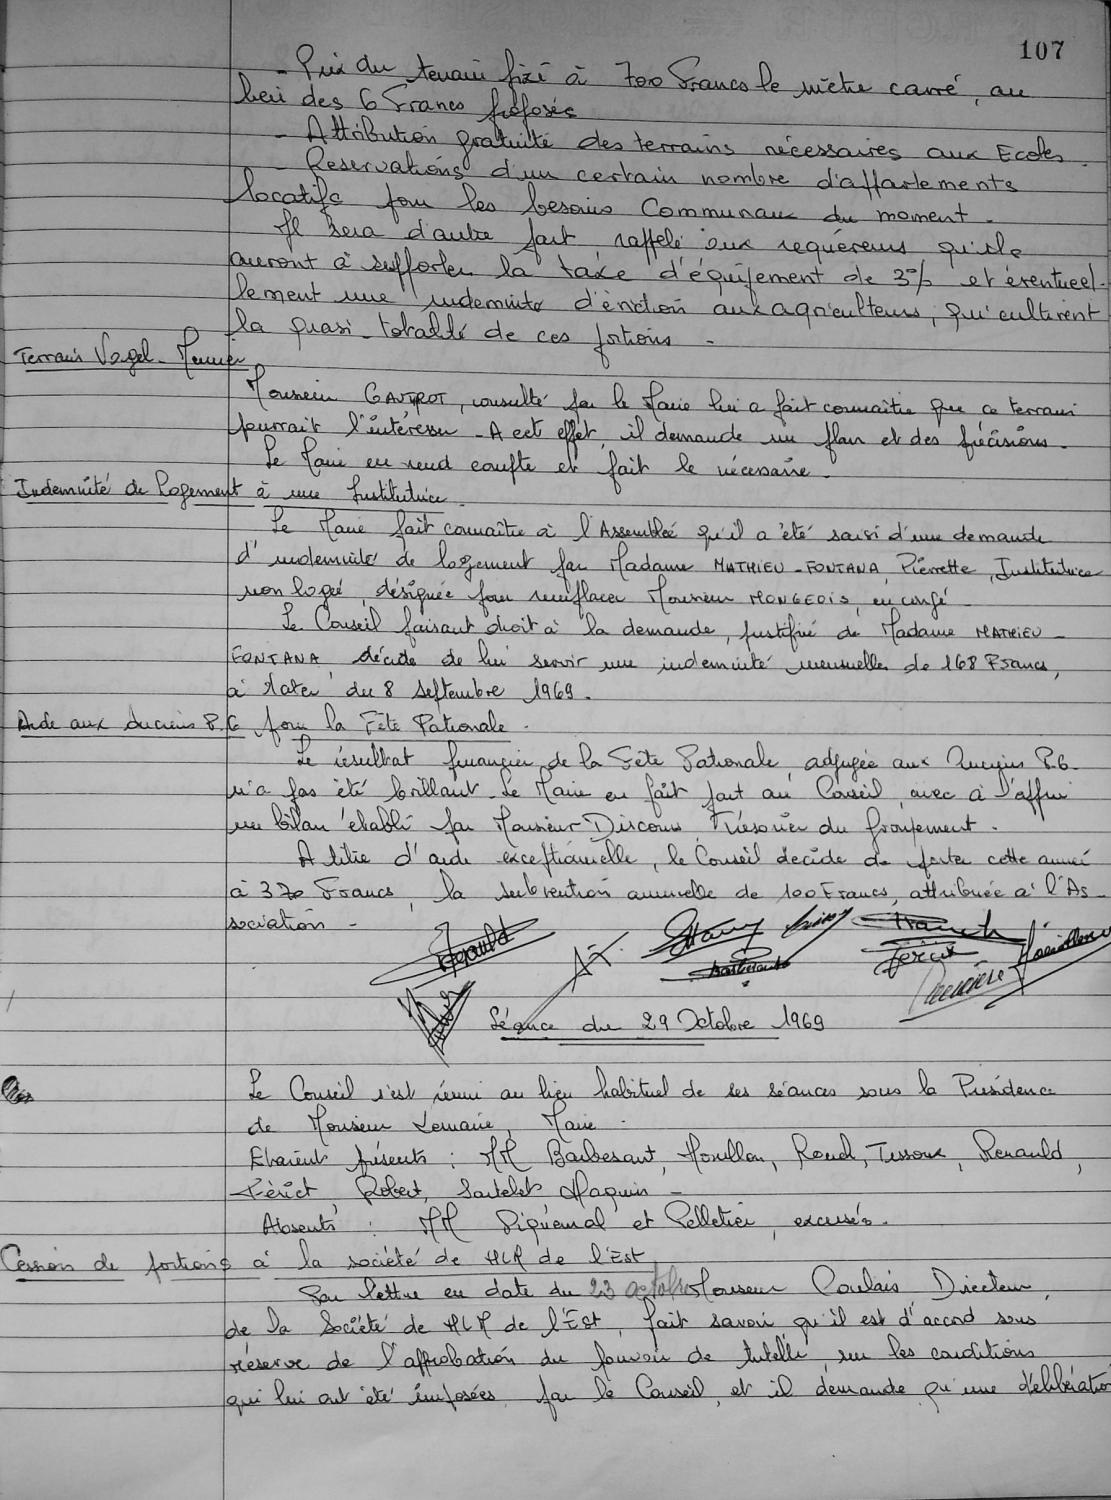 107
- Prix du terrain fixé à 700 Francs le mètre carré, au
lieu des 6 Francs proposés
- Attribution gratuite des terrains nécessaires aux Ecoles.
- Reservations d'un certain nombre d'appartements
locatifs pour les besoins Communaux du moment -
Il sera d'autre part rappelé aux requéreurs qu'ils
auront à supporter la taxe d'équipement de 3% et éventuel-
lement une indemnité d'éviction aux agriculteurs, qui cultivent
la quasi-totalité de ces portions -
Terrain Vogel-
Monsieur GAUTROT, consulté par le Maire lui a fait connaître que ce terrain
pourrait l'intéresser - A cet effet, il demande un plan et des précisions -
Le Maire en rend compte et fait le nécessaire -
Indemnité de Logement à une Institutrice
Le Maire fait connaître à l'Assemblée qu'il a été saisi d'une demande
d'indemnité de logement par Madame MATHIEU-FONTANA, Pierrette, Institutrice
non logée, désignée pour remplacer Monsieur MONGEOIS, en congé -
Le Conseil faisant droit à la demande, justifié de Madame MATHIEU-
FONTANA, décide de lui servir une indemnité mensuelle de 168 Francs,
à dater du 8 septembre 1969 -
Aide aux Anciens P.G pour la Fête Patronale -
Le résultat financier de la Fête Patronale, adjugée aux Anciens P.G.
n'a pas été brillant - Le Maire en fait part au Conseil, avec à l'appui
un bilan établi par Monsieur Discours, Trésorier du Groupement -
A titre d'aide exceptionnelle, le Conseil decide de porter cette année
à 370 Francs, la subvention annuelle de 100 Francs, attribuée à l'As-
sociation -
Séance du 29 Octobre 1969
Le Conseil s'est réuni au lieu habituel de ses séances sous la Présidence
de Monsieur Lemaire, Maire -
Etaient présents : MM Barbesant, Rouch, Renauld,
Férict Robert, Maquin -
Absents : MM Piquemal et Pelletier, excusés -
Cession de portions à la société de HLM de l'Est
Par lettre en date du 23 octobre Monsieur Directeur,
de la Société de HLM de l'Est, fait savoir qu'il est d'accord sous
réserve de l'approbation du pouvoir de tutelle, sur les conditions
qui lui ont été imposées par le Conseil, et il demande qu'une délibération